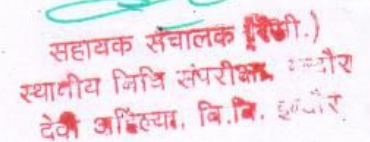 सहायक संचालक
स्थानीय निधि संपरीक्षा
देवी अहिल्या. वि.वि. इन्दौर